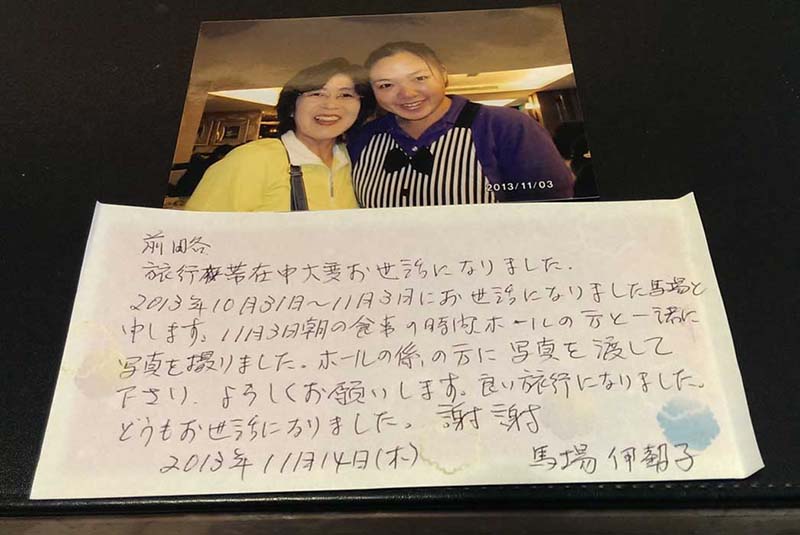 2013/11/03
前略
旅行滞在中大変お世話になりました.
2013年10月31日～11月3日にお世話になりました馬場と
申します。11月3日朝の食事の時にホールの方と一緒に
写真を撮りました。ホールの係の方に写真を渡して
下さり、よろしくお願いします。良い旅行になりました。
どうもお世話になりました。 謝謝
2013年11月14日(木)
馬場 伊朝子